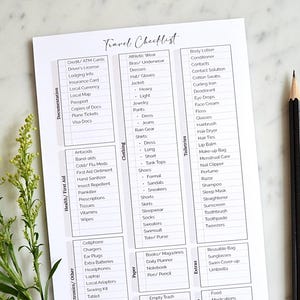 Travel Checklist
Documentation
Credit/ ATM Cards
Driver's License
Lodging Info
Insurance Card
Local Currency
Local Map
Passport
Copies of Docs
Plane Tickets
Visa Docs
Health/ First Aid
Antacids
Band-aids
Cold/ Flu Meds
First Aid Ointment
Hand Sanitizer
Insect Repellent
Painkiller
Prescriptions
Tissues
Vitamins
Wipes
Cellphone
Chargers
Ear Plugs
Extra Batteries
Headphones
Laptop
Local Adaptors
Sewing Kit
Tablet
Clothing
Athletic Wear
Bras/ Underwear
Dresses
Hat/ Gloves
Jacket
- Heavy
- Light
Jewelry
Pants
- Dress
- Jeans
Rain Gear
Shirts
- Dress
- Long
- Short
- Tank Tops
Shoes
- Formal
- Sandals
- Sneakers
Shorts
Skirts
Sleepwear
Socks
Sweaters
Swimsuit
Ties/ Purse
Paper
Books/ Magazines
Daily Planner
Notebook
Pen/ Pencil
Empty Trash
Toiletries
Body Lotion
Conditioner
Contacts
Contact Solution
Cotton Swabs
Curling Iron
Deodorant
Eye Drops
Face Cream
Floss
Glasses
Hairbrush
Hair Dryer
Hair Ties
Lip Balm
Make-up Bag
Menstrual Care
Nail Clipper
Perfume
Razor
Shampoo
Sleep Mask
Straightener
Sunscreen
Toothbrush
Toothpaste
Tweezers
Extras
Reusable Bag
Sunglasses
Swim Cover-up
Umbrella
Food